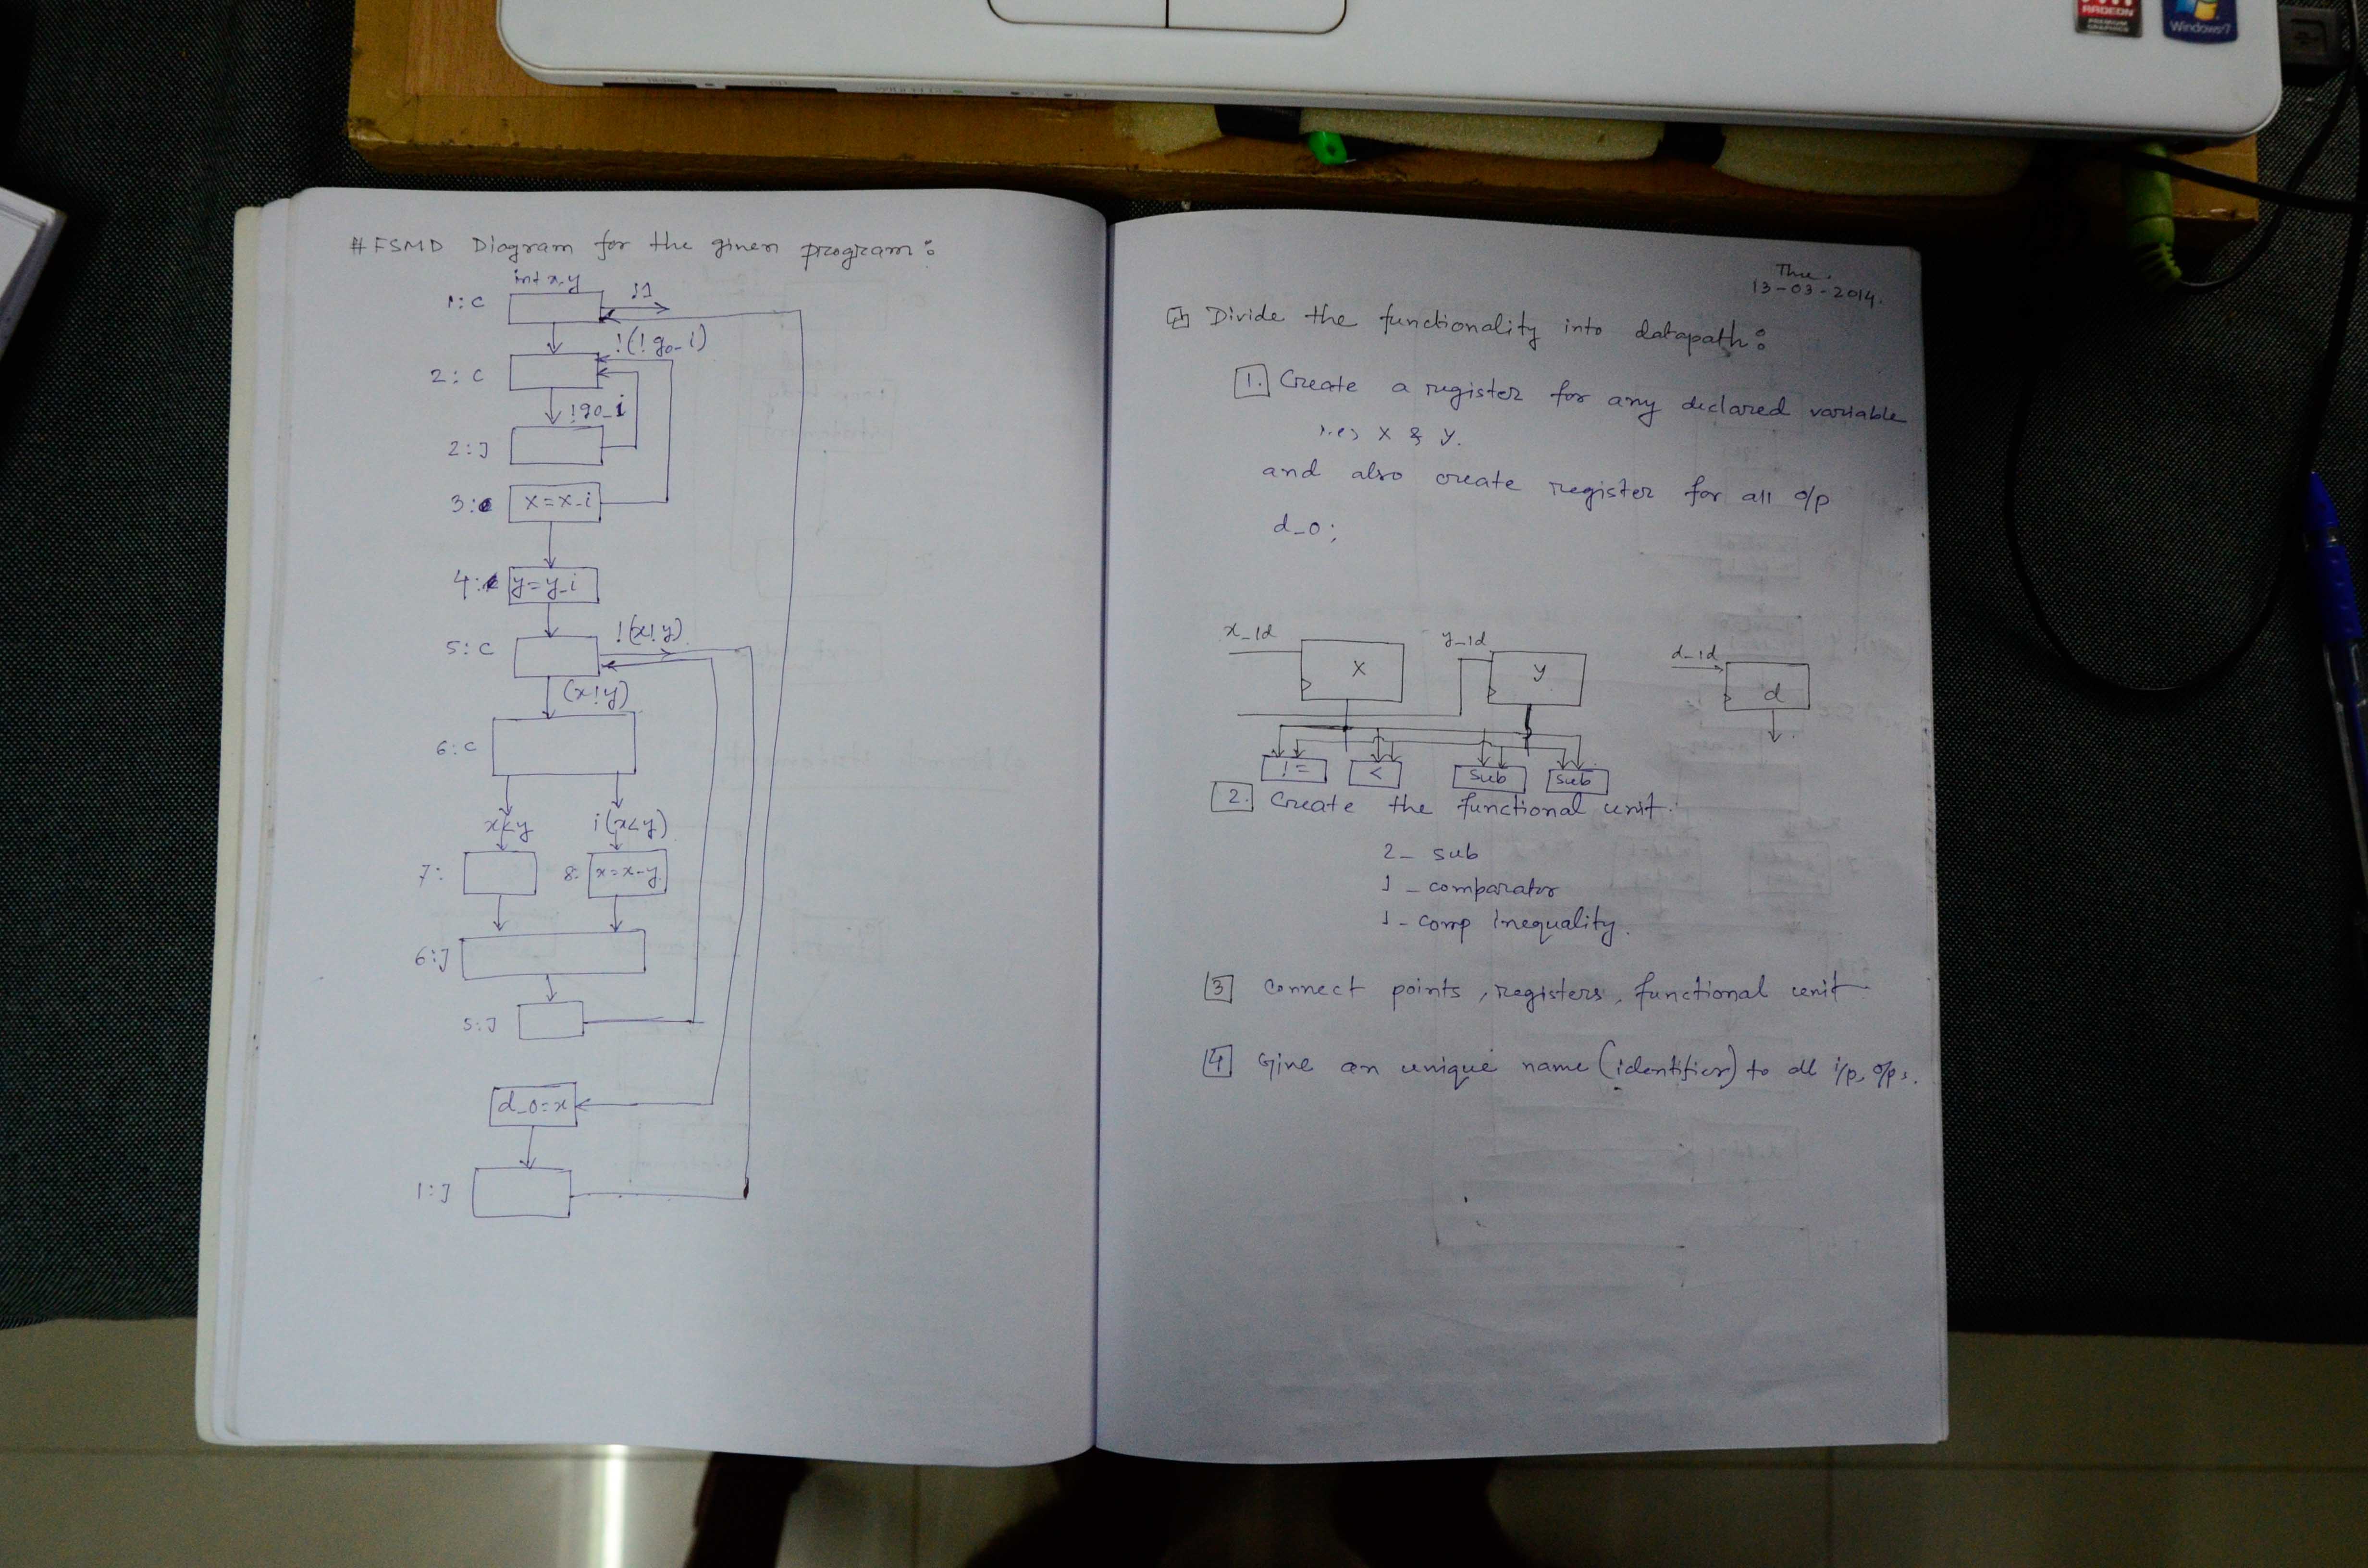 RADEON
PREMIUM
GRAPHICS
Windows 7
#FSMD Diagram for the given program:
int x,y
1: C
!1
!(!go_i)
2: C
!go_i
2: J
3:
x=x_i
4:
y=y_i
!(x!y)
5: C
(x!y)
6: C
x<y
i(x<y)
7:
8:
x=x-y
6: J
5: J
d_o=x
1: J
Thu.
13-03-2014.
Divide the functionality into datapath:
1. Create a register for any declared variable
i.e, X & Y.
and also create register for all o/p
d_o;
x_ld
y_ld
d_ld
X
y
d
!=
<
sub
sub
2. Create the functional unit.
2- sub
1- comparator
1- comp inequality.
3 Connect points, registers, functional unit
4 Give an unique name (identifier) to all i/p, o/ps.